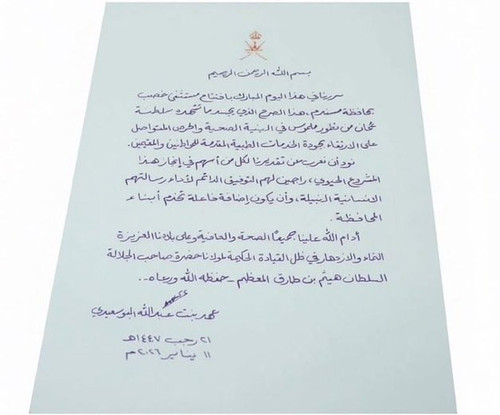 بسم الله الرحمن الرحيم
سررنا في هذا اليوم المبارك بافتتاح مستشفى خصب
بمحافظة مسندم، هذا الصرح الذي يجسد ما تشهده سلطنة
عُمان من تطور ملموس في البنية الصحية والحرص المتواصل
على الارتقاء بجودة الخدمات الطبية المقدمة للمواطنين والمقيمين.
نود أن نعرب عن تقديرنا لكل من أسهم في إنجاز هذا
المشروع الحيوي، راجين لهم التوفيق الدائم لأداء رسالتهم
الإنسانية النبيلة، وأن يكون إضافة فاعلة تخدم أبناء
المحافظة.
أدام الله علينا جميعًا الصحة والعافية وعلى بلادنا العزيزة
النماء والازدهار في ظل القيادة الحكيمة لمولانا حضرة صاحب الجلالة
السلطان هيثم بن طارق المعظم - حفظه الله ورعاه -.
عهد بنت عبدالله البوسعيدي
٢١ رجب ١٤٤٧هـ
١١ يناير ٢٠٢٦م